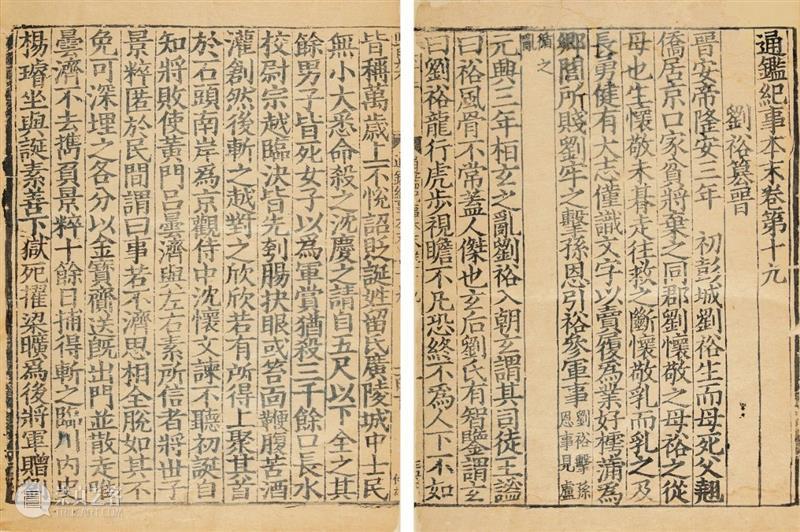 通鑑紀事本末卷第十九
劉裕篡晉
晉安帝隆安三年 初彭城劉裕生而母死父翹
僑居京口家貧將棄之同郡劉懷敬之母裕之從
母也生懷敬未朞走往救之斷懷敬乳而乳之及
長勇健有大志僅識文字以賣履為業好樗蒲為
鄉閭所賤劉牢之擊孫恩引裕參軍事劉裕擊孫恩事見盧
循之亂
元興三年桓玄之亂劉裕入朝玄謂其司徒王謐
曰裕風骨不常蓋人傑也玄后劉氏有智鑒謂玄
曰劉裕龍行虎步視瞻不凡恐終不為人下不如
皆稱萬歲上不悅詔貶誕姓留氏廣陵城中士民
無小大悉命殺之沈慶之請自五尺以下全之其
餘男子皆死女子以為軍賞猶殺三千餘口長水
校尉宗越臨決皆先刳腸抉眼或笞面鞭腹苦酒
灌創然後斬之越對之欣欣若有所得上聚其首
於石頭南岸為京觀侍中沈懷文諫不聽初誕自
知將敗使黃門呂曇濟與左右素所信者將世子
景粹匿於民間謂曰事若不濟思相全脫如其不
免可深埋之各分以金寶齎送既出門並散走唯
曇濟不去攜負景粹十餘日捕得斬之臨川內史
楊璿坐與誕素善下獄死擢梁曠為後將軍贈